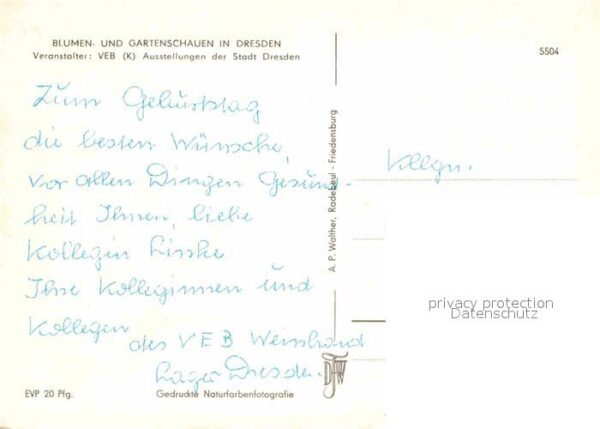 BLUMEN- UND GARTENSCHAUEN IN DRESDEN
Veranstalter: VEB (K) Ausstellungen der Stadt Dresden
5504
Zum Geburtstag
die besten Wünsche,
vor allen Dingen Gesund-
heit Ihnen, liebe
Kollegin Linke
Ihre Kolleginnen und
Kollegen
des VEB Weinhand
Lager Dresden.
Kllgn.
A. P. Walther, Radebeul - Friedensburg
privacy protection
Datenschutz
EVP 20 Pfg.
Gedruckte Naturfarbenfotografie